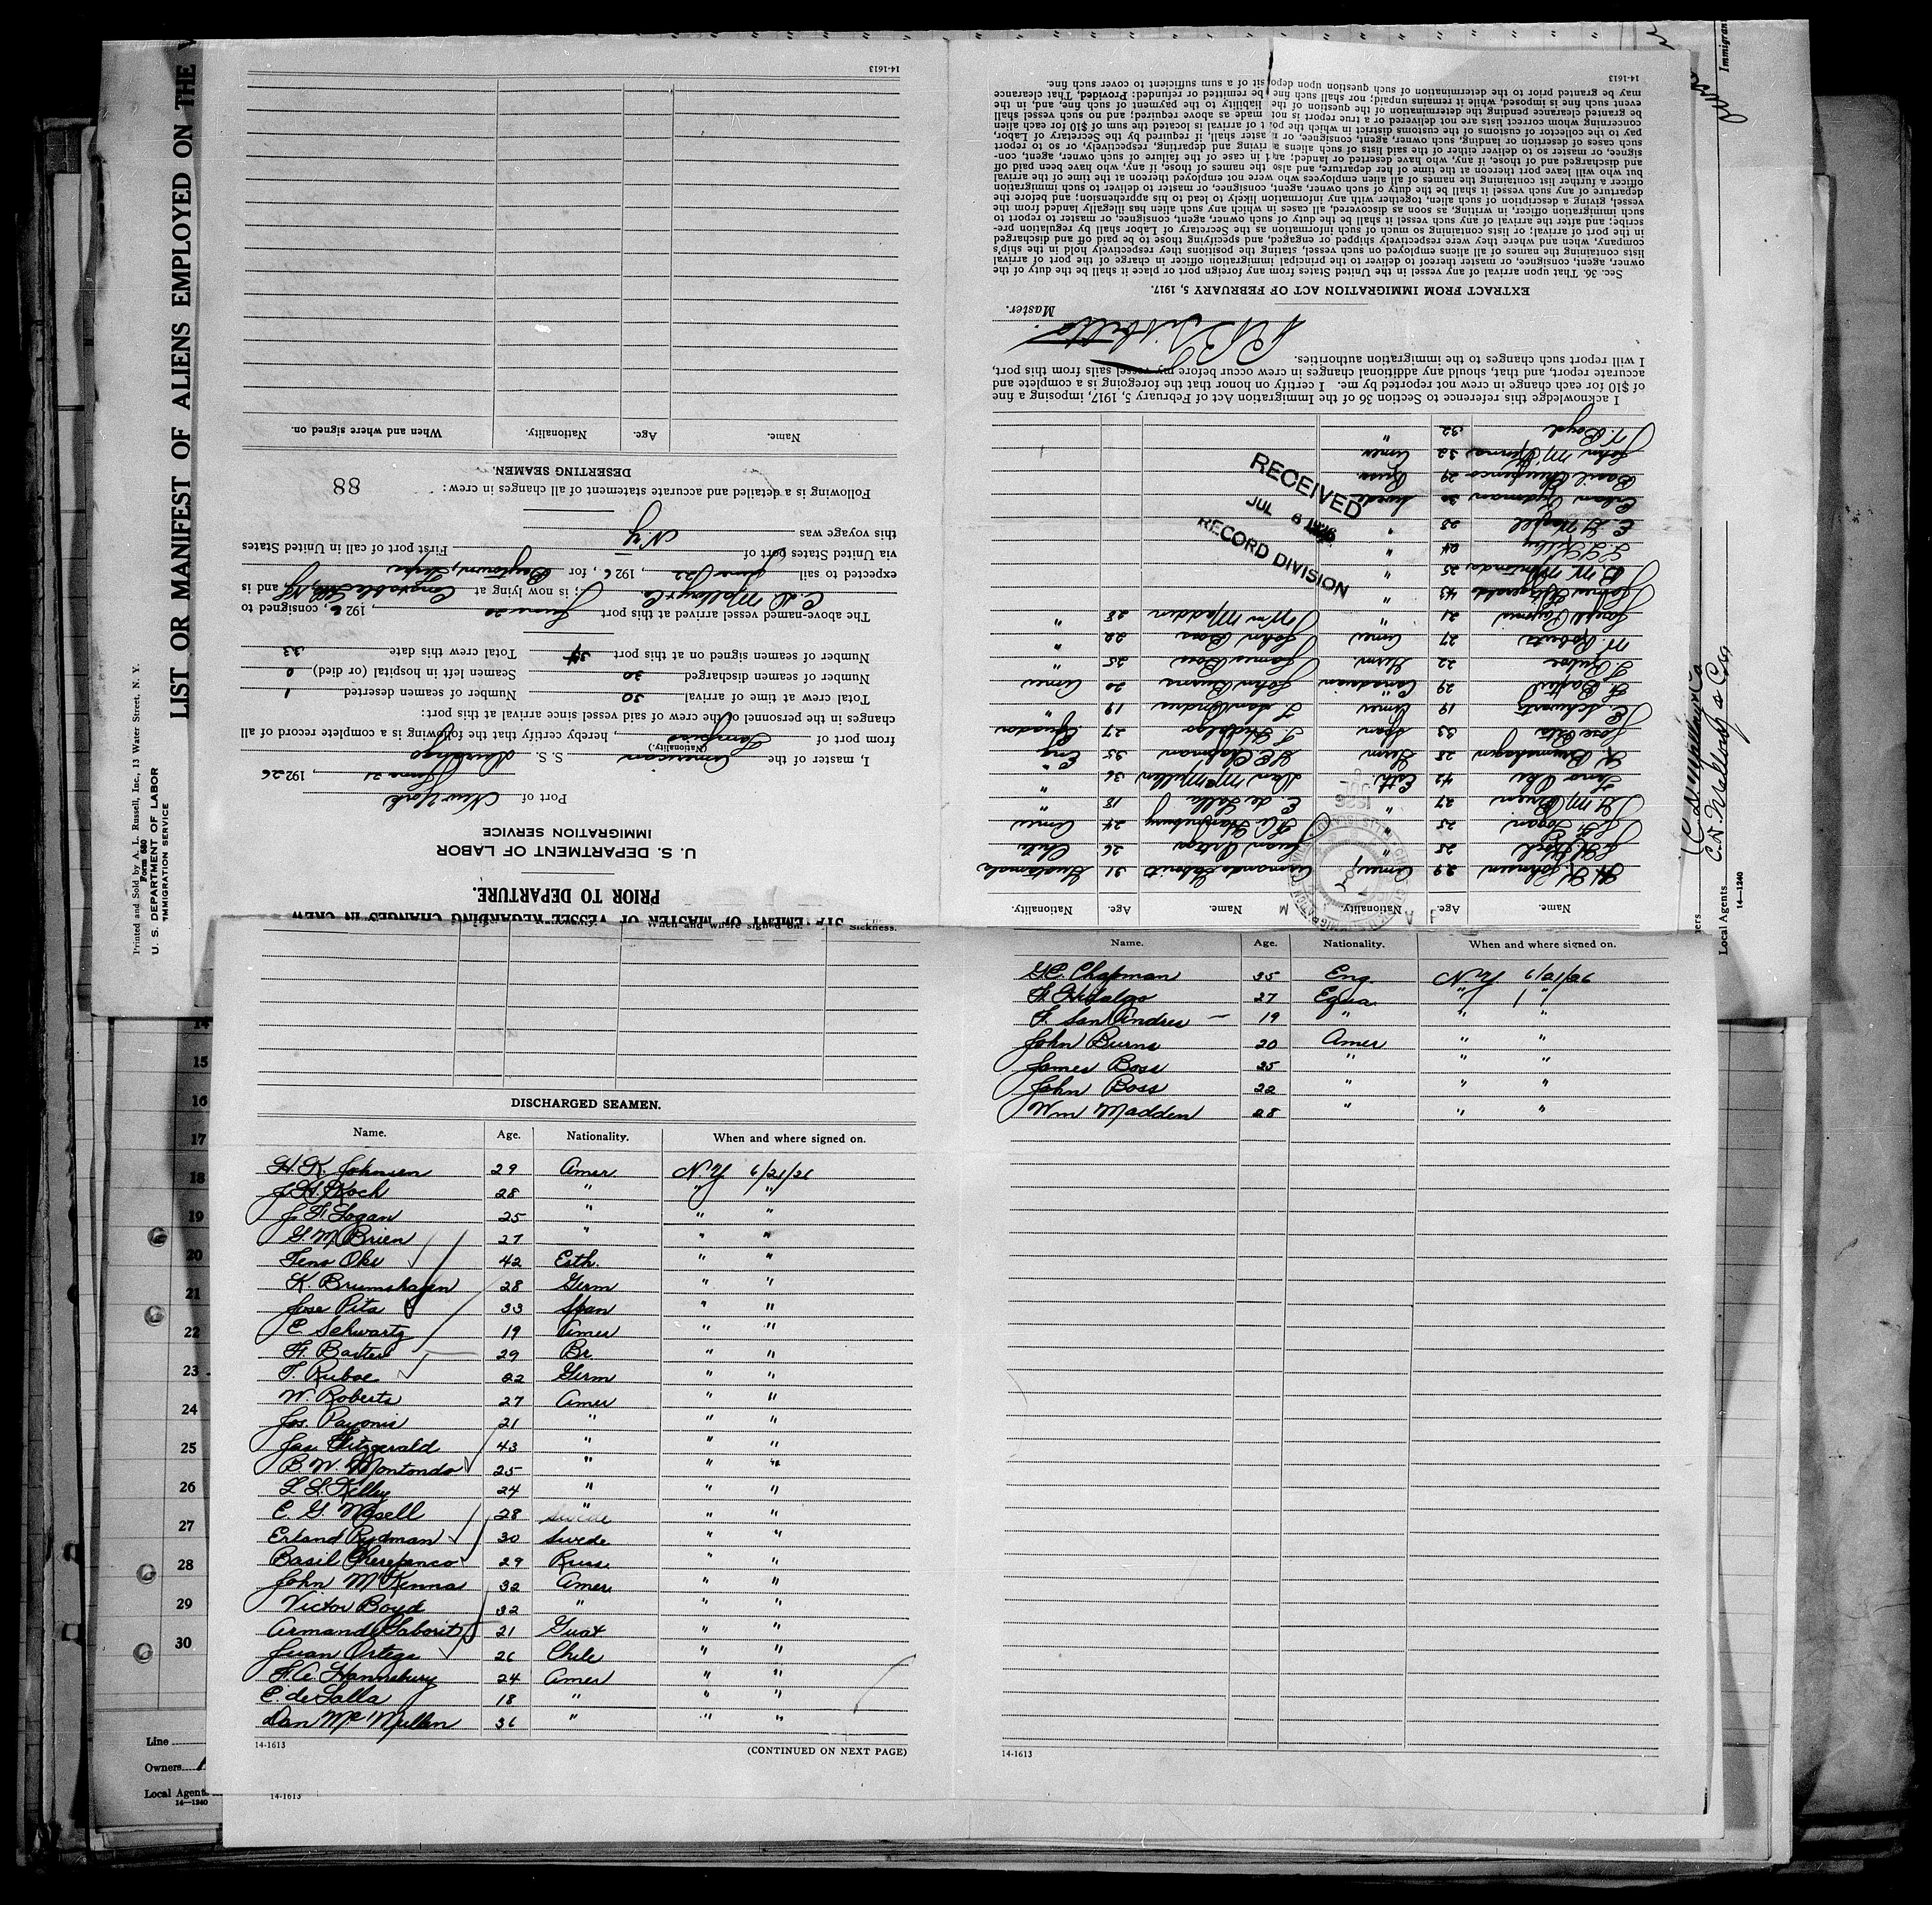 LIST OR MANIFEST OF ALIENS EMPLOYED ON THE
Printed and Sold by A. L. Russell, Inc., 13 Water Street, N. Y.
Form 680
U. S. DEPARTMENT OF LABOR
IMMIGRATION SERVICE
STATEMENT OF MASTER OF VESSEL REGARDING CHANGES IN CREW
PRIOR TO DEPARTURE.
U. S. DEPARTMENT OF LABOR
IMMIGRATION SERVICE
Port of New York
June 21, 1926
I, master of the American S. S. Durango
(Nationality.)
from port of Tampico, hereby certify that the following is a complete record of all
changes in the personnel of the crew of said vessel since arrival at this port:
Total crew at time of arrival 30 Number of seamen deserted 1
Number of seamen discharged 30 Seamen left in hospital (or died) 0
Number of seamen signed on at this port 34 Total crew this date 33
The above-named vessel arrived at this port June 20, 1926, consigned to
C. D. Mallory & Co.; is now lying at Constable and is
expected to sail June 22, 1926, for Baytown, Texas
via United States port of First port of call in United States
this voyage was N.Y.
Following is a detailed and accurate statement of all changes in crew:
88
DESERTING SEAMEN.
Name. Age. Nationality. When and where signed on.
14-1613
Name. Age. Nationality. Name. Age. Nationality.
H. K. Johnsen 29 Amer Armando Saborit 31 Guatemala
J. H. Koch 28 " Juan Ortega 26 Chile
J. F. Logan 25 " F. A. Hannsbury 24 Amer
G. M. Brien 27 " E. de Salla 18 "
Tens Oke 42 Esth. Dan McMullen 36 "
K. Brumshagen 28 Germ G. E. Chapman 35 Eng
Jose Pita 33 Span F. Hidalgo 27 Equador
E. Schwartz 19 Amer F. San Andres 19 "
H. Baxter 29 Canadian John Burns 20 Amer
T. Ruboe 22 Germ. James Boss 25 "
W Roberts 27 Amer John Boss 22 "
Joseph Payonis 21 " Wm Madden 28 "
James Fitzgerald 43 "
B. W. Montondo 25 "
L. L. Kelley 24 "
E. G. Mosell 28 "
Erland Rydman 30 Swede
Basil Cherepenco 29 Russ
John McKenna 32 Amer
V. Boyd 32 "
RECEIVED
JUL 6 1926
RECORD DIVISION
I acknowledge this reference to Section 36 of the Immigration Act of February 5, 1917, imposing a fine
of $10 for each change in crew not reported by me. I certify on honor that the foregoing is a complete and
accurate report, and that, should any additional changes in crew occur before my vessel sails from this port,
I will report such changes to the immigration authorities.
Master.
EXTRACT FROM IMMIGRATION ACT OF FEBRUARY 5, 1917.
Sec. 36. That upon arrival of any vessel in the United States from any foreign port or place it shall be the duty of the
owner, agent, consignee, or master thereof to deliver to the principal immigration officer in charge of the port of arrival
lists containing the names of all aliens employed on such vessel, stating the positions they respectively hold in the ship's
company, when and where they were respectively shipped or engaged, and specifying those to be paid off and discharged
in the port of arrival; or lists containing so much of such information as the Secretary of Labor shall by regulation pre-
scribe; and after the arrival of any such vessel it shall be the duty of such owner, agent, consignee, or master to report to
such immigration officer, in writing, as soon as discovered, all cases in which any such alien has illegally landed from the
vessel, giving a description of such alien, together with any information likely to lead to his apprehension; and before the
departure of any such vessel it shall be the duty of such owner, agent, consignee, or master to deliver to such immigration
officer a further list containing the names of all alien employees who were not employed thereon at the time of the arrival
but who will leave port thereon at the time of her departure, and also the names of those, if any, who have been paid off
and discharged and of those, if any, who have deserted or landed; and in case of the failure of such owner, agent, con-
signee, or master so to deliver either of the said lists of such aliens arriving and departing, respectively, or so to report
such cases of desertion or landing, such owner, agent, consignee, or master shall if required by the Secretary of Labor,
pay to the collector of customs of the customs district in which the port of arrival is located the sum of $10 for each alien
concerning whom correct lists are not delivered or a true report is not made as above required; and no such vessel shall
be granted clearance pending the determination of the question of the liability to the payment of such fine, and, in the
event such fine is imposed, while it remains unpaid; nor shall such fine be remitted or refunded: Provided, That clearance
may be granted prior to the determination of such question upon deposit of a sum sufficient to cover such fine.
14-1613
C. D. Mallory & Co
C. D. Mallory & Co
Local Agents
14-1240
Immigran
When and where signed on. Sickness.
DISCHARGED SEAMEN.
Name. Age. Nationality. When and where signed on.
H. K. Johnsen 29 Amer. N.Y. 6/21/26
J. H. Koch 28 " " "
J. F. Logan 25 " " "
G. M. Brien 27 " " "
Tens Oke 42 Esth. " "
K. Brumshagen 28 Germ " "
Jose Pita 33 Span " "
E Schwartz 19 Amer " "
H. Baxter 29 Br. " "
T. Ruboe 22 Germ " "
W. Roberts 27 Amer " "
Jos. Payonis 21 " " "
Jas Fitzgerald 43 " " "
B. W. Montondo 25 " " "
L. L. Kelley 24 " " "
E. G. Mosell 28 " " "
Erland Rydman 30 Swede " "
Basil Cherepenco 29 Russ. " "
John McKenna 32 Amer " "
Victor Boyd 32 " " "
Armando Saborit 21 Guat " "
Juan Ortega 26 Chile " "
F. A. Hannsbury 24 Amer " "
E. de Salla 18 " " "
Dan McMullen 36 " " "
14-1613
(CONTINUED ON NEXT PAGE)
14-1613
Name. Age. Nationality. When and where signed on.
G. E. Chapman 35 Eng. N.Y. 6/21/26
F. Hidalgo 27 Equa. " "
F. San Andres 19 " " "
John Burns 20 Amer " "
James Boss 25 " " "
John Boss 22 " " "
Wm Madden 28 " " "
14-1613
14
15
16
17
18
19
20
21
22
23
24
25
26
27
28
29
30
Line
Owners
Local Agents
14-1240